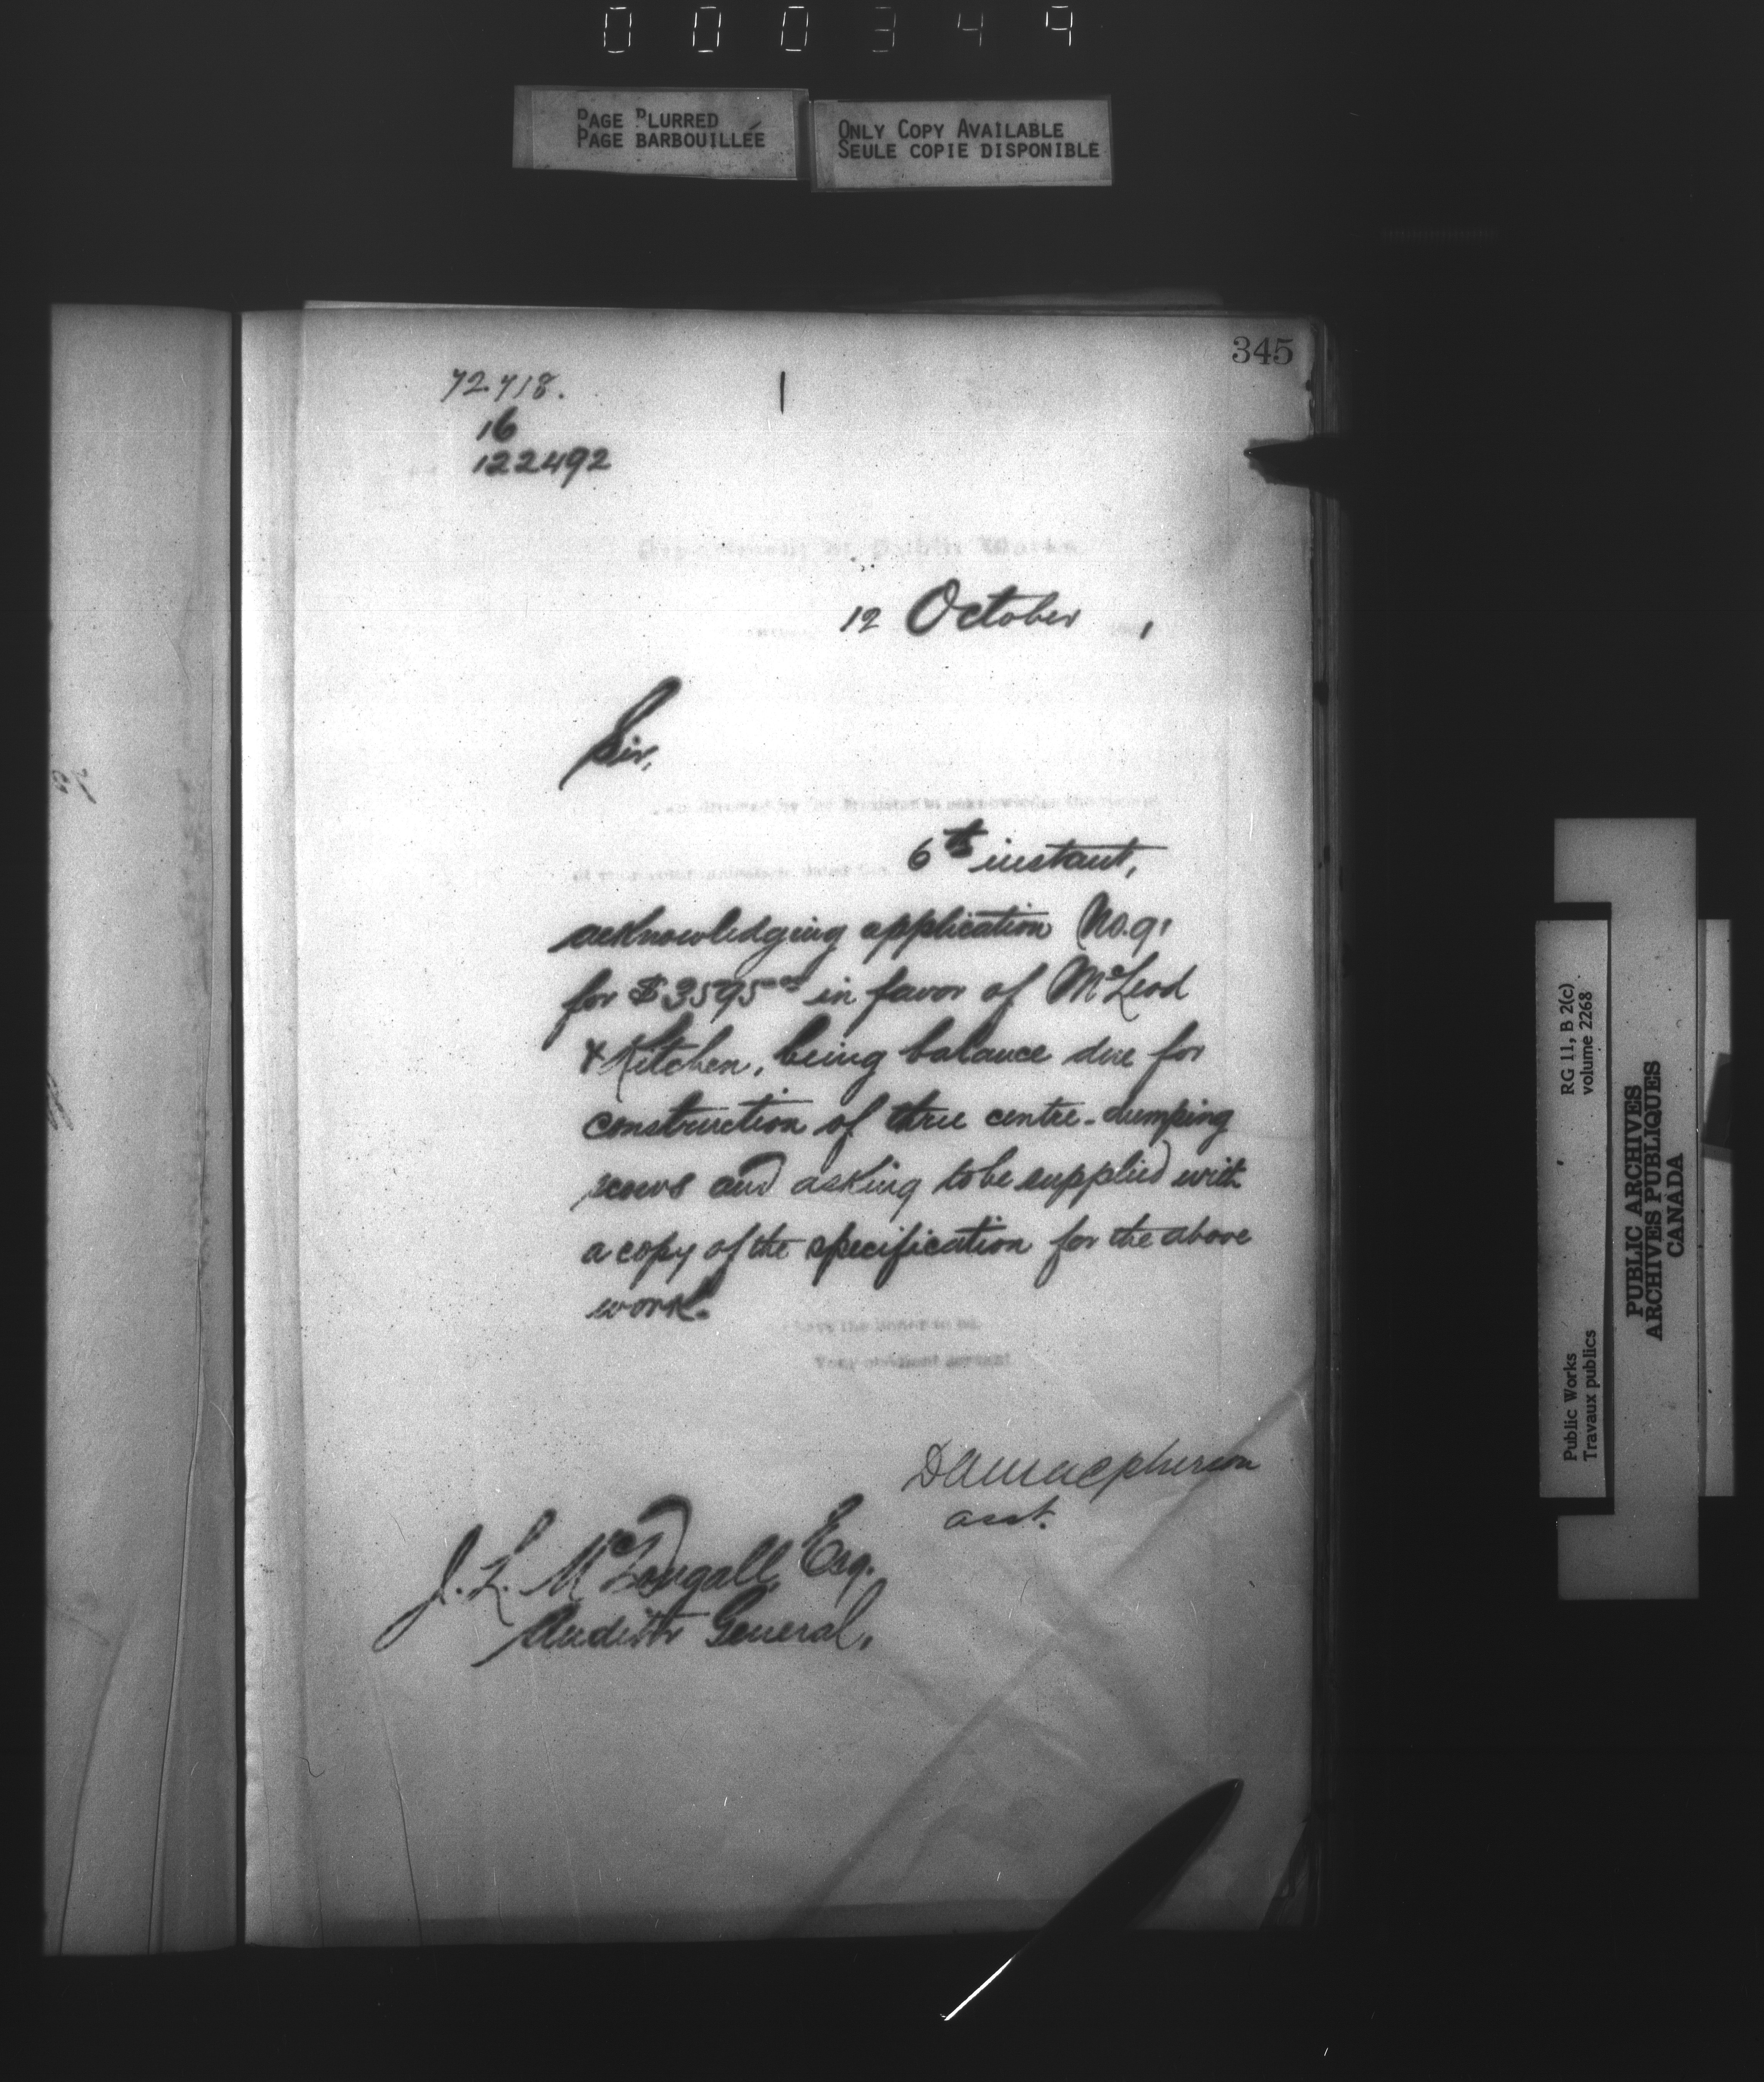 000349
PAGE BLURRED
PAGE BARBOUILLÉE
ONLY COPY AVAILABLE
SEULE COPIE DISPONIBLE
345
72.718.
16
122492
Department of Public Works
12 October 1
Sir,
am directed by the Minister to acknowledge the receipt
of your communication dated the 6th instant,
acknowledging application No. 91
for $3595.00 in favor of McLeod
& Kitchen, being balance due for
construction of three centre-dumping
scows and asking to be supplied with
a copy of the specification for the above
work.
have the honor to be,
Your obedient servant
D A Macpherson
asst.
J. L. McDougall, Esq.
Auditor General.
RG 11, B 2(c)
volume 2268
Public Works
Travaux publics
PUBLIC ARCHIVES
ARCHIVES PUBLIQUES
CANADA